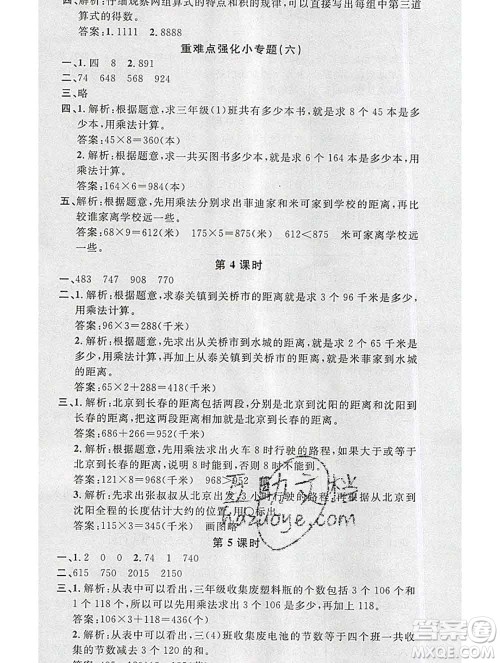 四、解析:仔细观察两组算式的特点和规律,可以直接写出每组中第三道
算式的得数。
答案:1.1111 2.8888
重难点强化小专题(六)
一、1.四 8 2.891
二、74 648 568 924
三、略
四、1.解析:根据题意,求三年级(1)班共有多少本书,就是求 8 个 45 本是多
少,用乘法计算。
答案:45×8=360(本)
2.解析:根据题意,求一共买图书多少本,就是求 6 个 164 本是多少,用
乘法计算。
答案:164×6=984(本)
五、解析:根据题意,先用乘法分别求出菲迪家和米可家到学校的距离,再
比较谁家离学校远一些。
答案:68×9=612(米) 175×5=875(米) 612<875 米可家离学校
远一些。
第 4 课时
一、483 747 908 770
二、1.解析:根据题意,求泰关镇到关桥市的距离就是求 3 个 96 千米是多少,
用乘法计算。
答案:96×3=288(千米)
2.解析:根据题意,先求出从关桥市到水城的距离就是求 2 个 65 千米
是多少,用乘法计算,再加上泰关镇到关桥市的距离就是米菲家到水城
的距离。
答案:65×2+288=418(千米)
三、1.解析:北京到长春的距离包括两段,分别是北京到沈阳的距离和沈阳到
长春的距离,把两段距离加起来就是北京到长春的距离。
答案:686+266=952(千米)
2.解析:根据题意,先求出火车 8 时行驶的路程,如果大于或等于
北京到长春的距离,8 时能到,否则不能到。
答案:121×8=968(千米) 968>952 能到
3.解析:先求出张叔叔从北京出发,3 时行驶的路程,再根据北京到沈
阳全程的长度估计大约的位置,用□标出来。
答案:115×3=345(千米) 画图略
第 5 课时
一、1.2 0 0 2.74 1 740
二、615 750 2015 2150
三、1.解析:根据题意,三年级收集废塑料瓶的个数包括 3 个 106 个和 1 个
118 个,所以先用乘法求出 3 个 106 是多少,再加上 118。
答案:106×3+118=436(个)
2.解析:根据题意,三(4)班收集废电池的节数等于三(1)班收集废电池
的节数乘 3 再减去 120 的差。
三助文档
hazuoye.com
作业帮